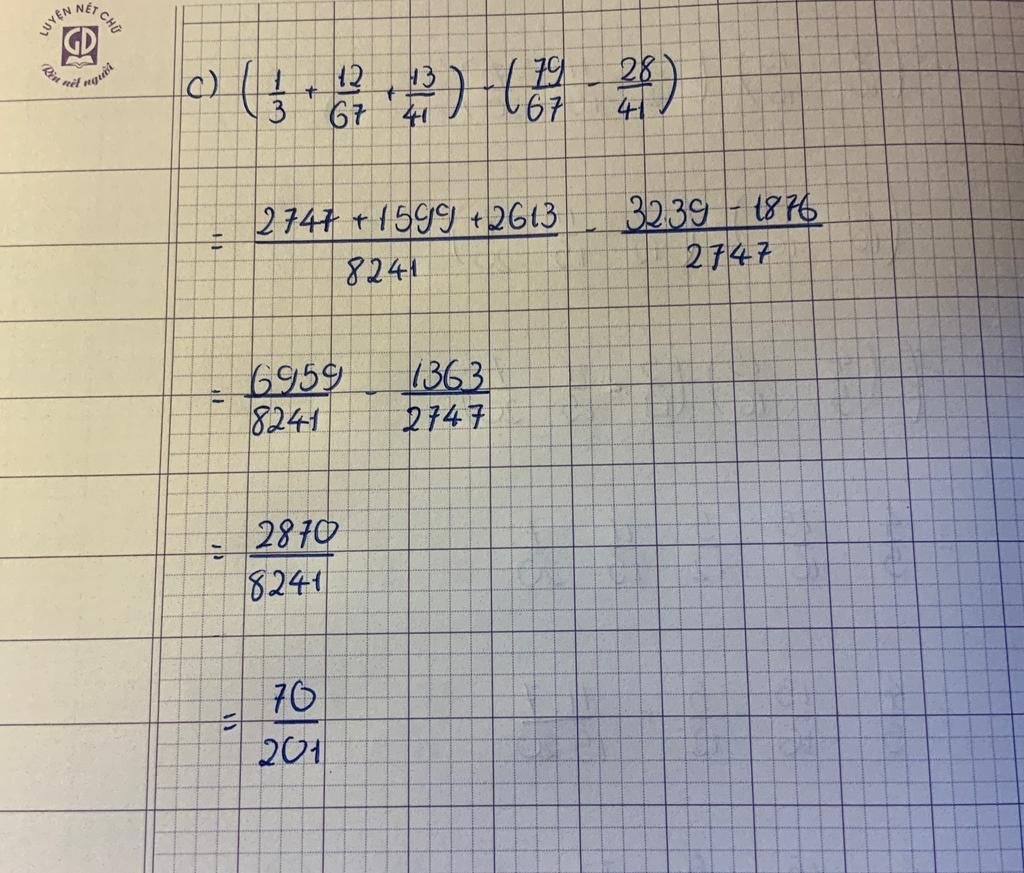 LUYỆN NÉT CHỮ
GD
Rèn nết người
c) (1/3 + 12/67 + 13/41) - (79/67 - 28/41)
= (2747 + 1599 + 2613)/8241 - (3239 - 1876)/2747
= 6959/8241 - 1363/2747
= 2870/8241
= 70/201